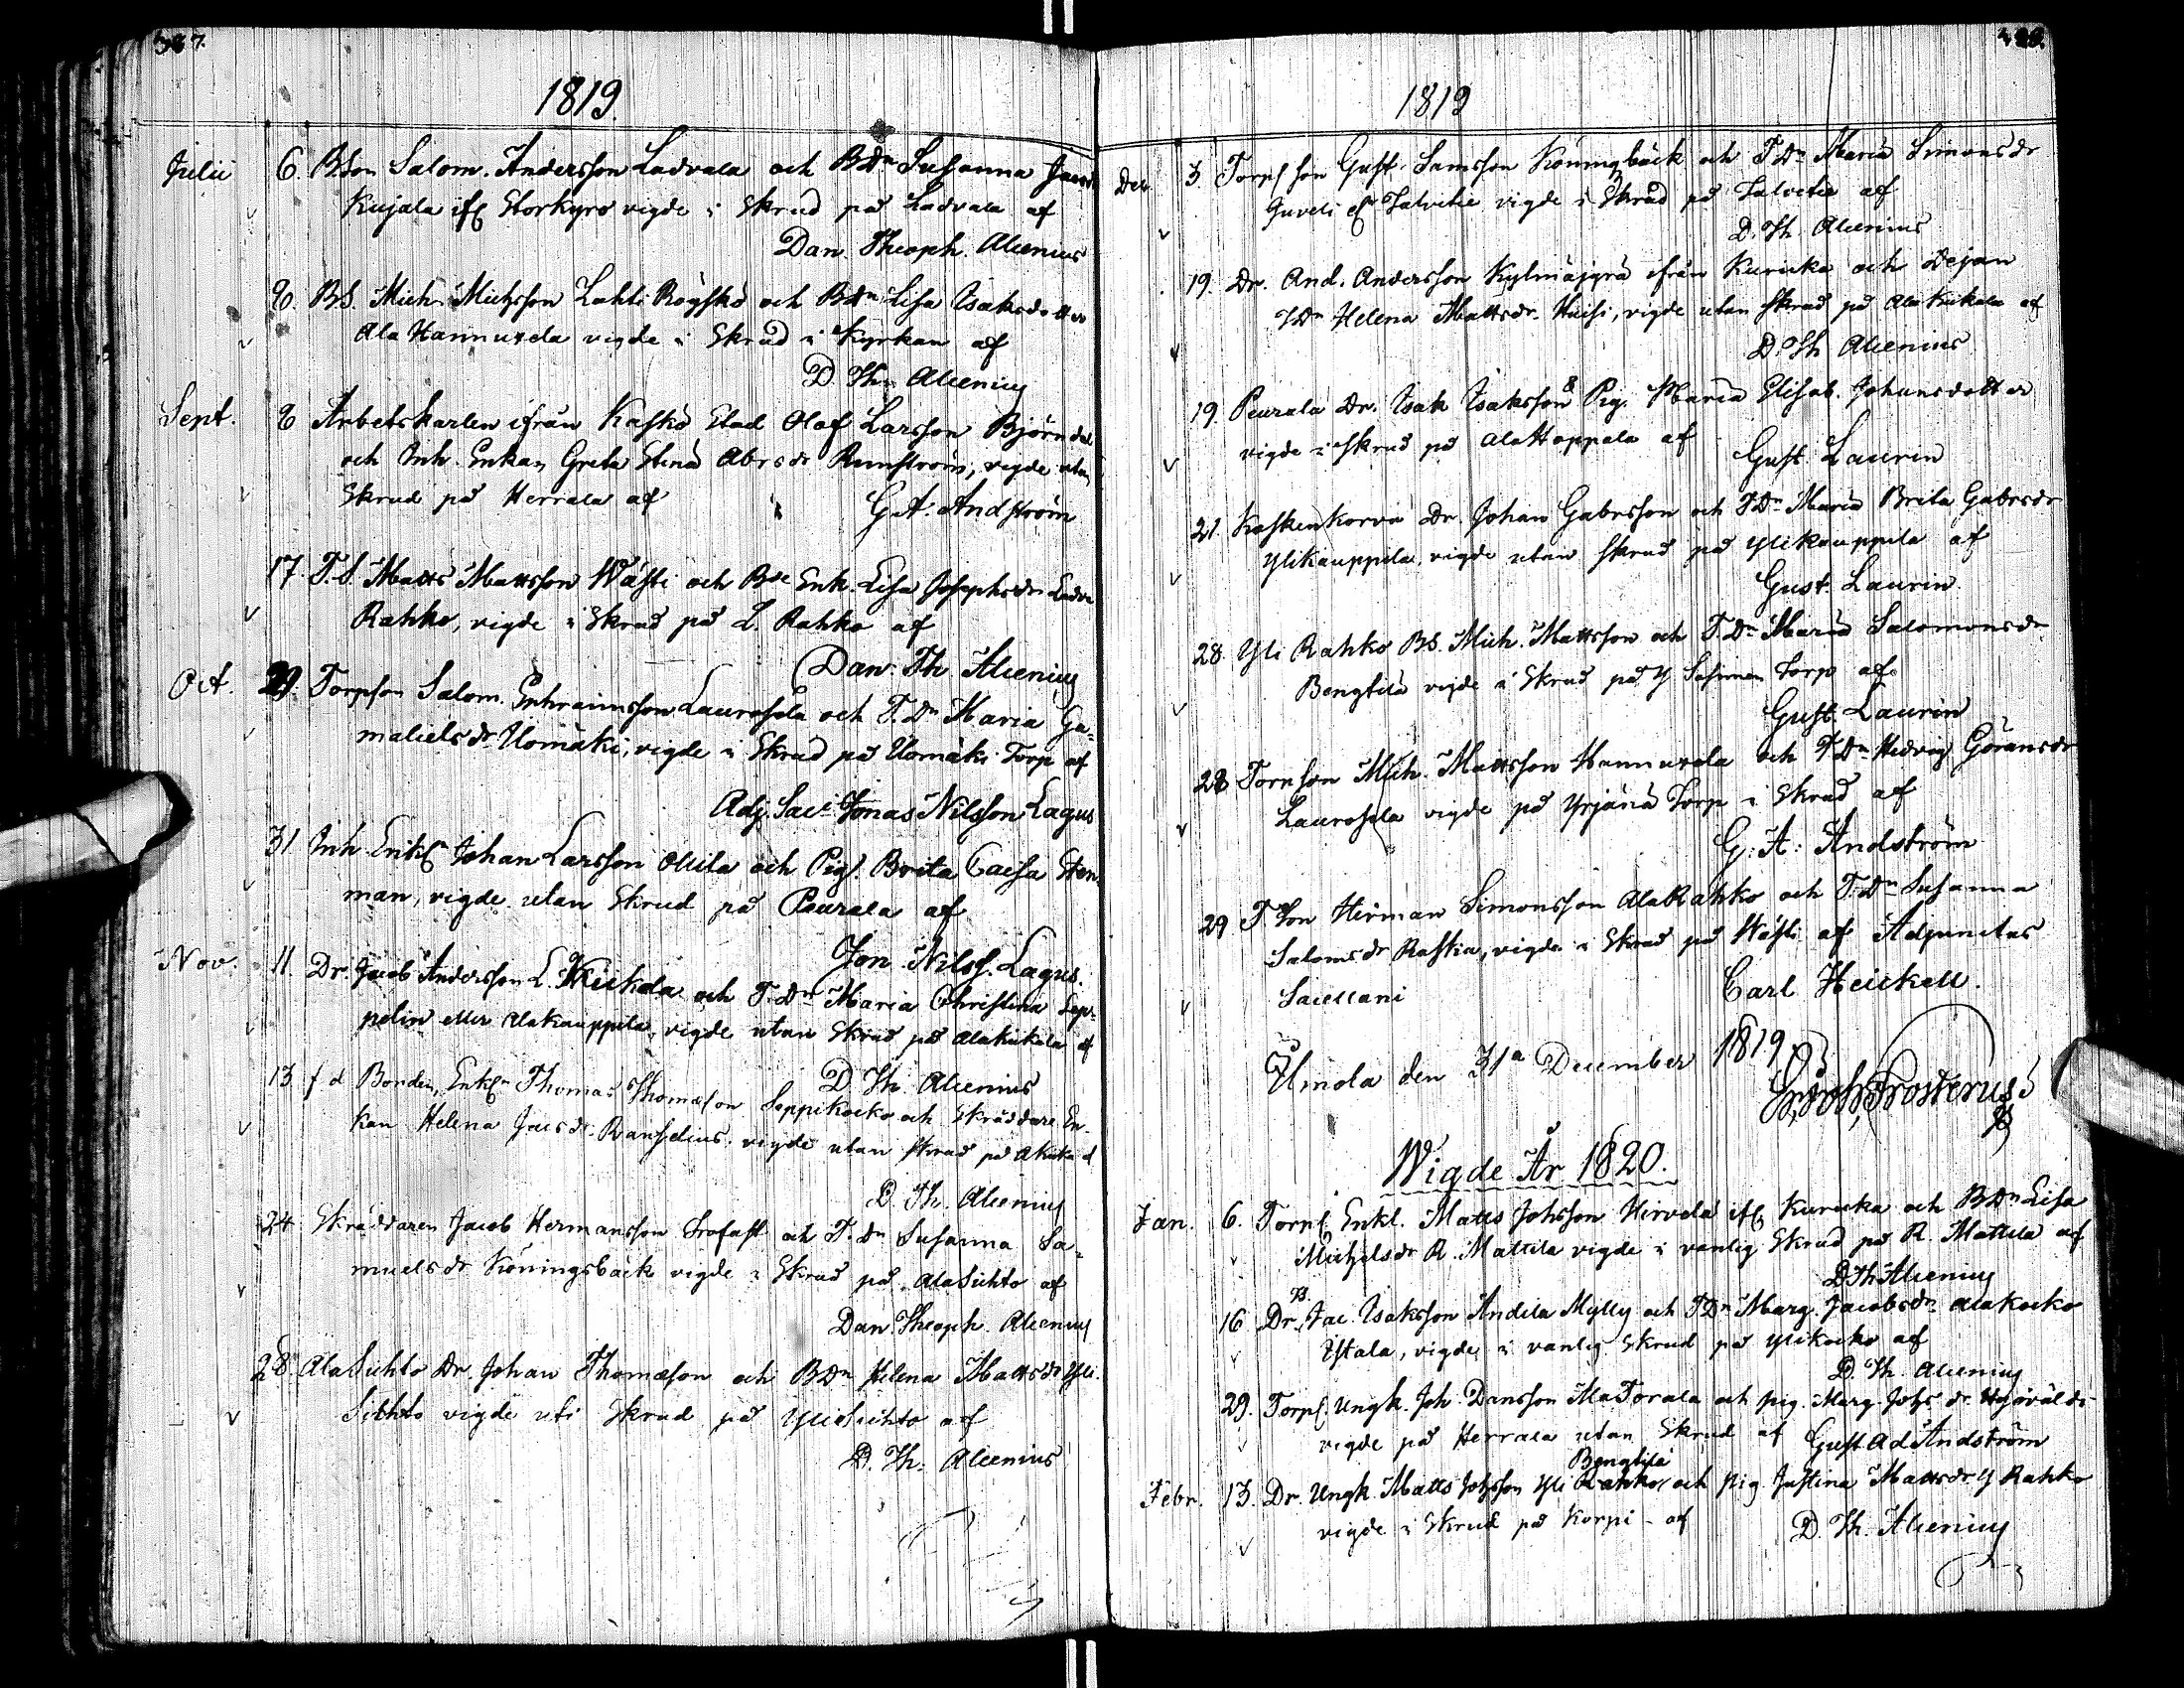 387.
1819.
Julii 6. BSon Salom. Andersson Ladvala och BDn Susanna Jacsdr
Kujala ifr Storkyro vigde i Skrud på Ladvala af
Dan. Theoph. Alcenius
8. BS. Mich. Michsson Lahti Röyskö och BDn Lisa Isaksdotter
Ala Hannuxela vigde i Skrud i Kyrkan af
D. Th. Alcenius
Sept. 8 Arbetskarlen ifrån Kaskö Stad Olof Larsson Björndal
och Inh. Enkan Greta Stina Abrsdr Runström, vigde utan
Skrud på Herrala af
G. A. Andström
17. T.S. Matts Mattsson Wästi och Bde Enk. Lisa Josephsdr Ladva
Rahko, vigde i Skrud på L. Rahko af
Dan. Th Alcenius
Oct. 29. Torpson Salom. Ephraimsson Laurosela och T.Dn Maria Ga-
malielsdr Uomäki, vigde i Skrud på Uomäki Torp af
Adj. Sac. Jonas Nilsson Lagus
31 Inh. Enkl Johan Larsson Ollila och Pig. Brita Caisa Sten-
man, vigde utan Skrud på Peurala af
Jon. Nilss. Lagus.
Nov. 11 Dr. Jacob Andersson L. Kuckola och T.Dn Maria Christina Lep-
pelin eller Alakauppila, vigde utan Skrud på Alakukola af
D. Th. Alcenius
13 f d Bonden, Enkln Thomas Thomæson Seppikocko och Skräddare En-
kan Helena Jacsdr Ranselius, vigde utan Skrud på
D. Th. Alcenius
24 Skräddaren Jacob Hermansson Trofast och T.Dn Susanna Sa-
muelsdr Köningsbäck vigde i Skrud på AlaSichto af
Dan. Theoph. Alcenius
28. AlaSichto Dr. Johan Thomæson och BDn Helena Mattsdr Yli-
Sichto vigde uti Skrud på YliSichto af
D. Th. Alcenius
1819
Dec. 3. Torpsson Gust. Samsson Köningbäck och T.Dn Maria Simonsdr
Juveli el Talvitie vigde i Skrud på Talvitie af
D. Th. Alcenius
19. Dr. And. Andersson Kylmäjyrä ifrån Kuricka och Dejan
TDn Helena Mattsdr. Huisi, vigde utan Skrud på AlaKukola af
D. Th Alcenius
19. Peurala Dr. Isak Isaksson & Pig. Maria Elisab. Johansdotter
vigde i Skrud på AlaHoppala af
Gust. Laurin
21. Koskenkorva Dr. Johan Gabrsson och TDn Maria Brita Gabrsdr
Ylikauppila, vigde utan Skrud på Ylikauppila af
Gust. Laurin.
28. Yli Rahko BS. Mich. Mattsson och T.Dn Maria Salomonsdr
Bengtilä vigde i Skrud på Y Torp af
Gust. Laurin
28 Torpson Mich. Mattsson Hannuxela och TDn Hedvig Göransdr
Laurosela vigde på Yrjänä Torp i Skrud af
G: A: Andström
29 T. Son Hirman Simonsson AlaRahko och T.Dn Susanna
Salomsdr Raskia, vigde i Skrud på Wästi af Adjunctus
Sacellani
Carl Heickell.
Ilmola den 31a December 1819
Frosterus
Wigde År 1820.
Jan. 6. Torps. Enkl. Matts Johsson Hirvelä ifr Kuricka och BDn Lisa
Michelsdr R. Mattila vigde i vanlig Skrud på R. Mattila af
D Th Alcenius
16 Dr. Jac. Isaksson Andila Mylly och TDn Marg. Jacobsdr Alakocko
Ystala, vigde i vanlig Skrud på Ylikocko af
D. Th. Alcenius
29. Torps. Ungk. Joh. Dansson AlaTorala och pig. Marg Johs dr.
vigde på Herrala utan Skrud af Gust Ad Andström
Bengtilä
Febr. 13. Dr. Ungk. Matts Johsson Yli Rahko och pig Justina Mattsdr Y Rahko
vigde i Skrud på Korpi - af
D. Th. Alcenius